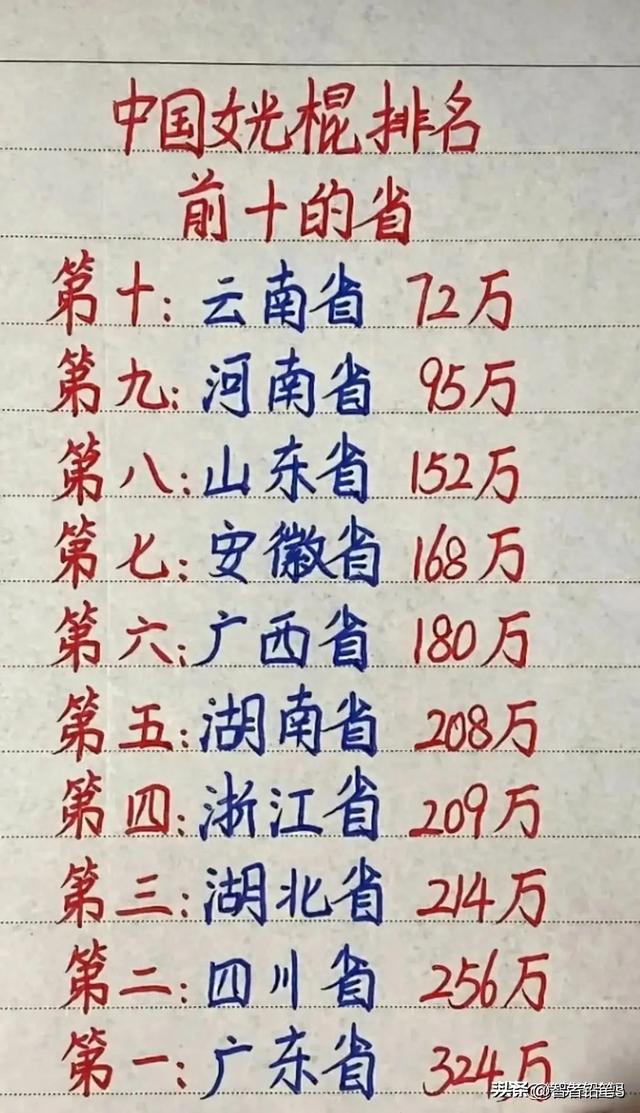 中国女光棍排名
前十的省
第十:云南省 72万
第九:河南省 95万
第八:山东省 152万
第七:安徽省 168万
第六:广西省 180万
第五:湖南省 208万
第四:浙江省 209万
第三:湖北省 214万
第二:四川省 256万
第一:广东省 324万
头条@智者铅笔